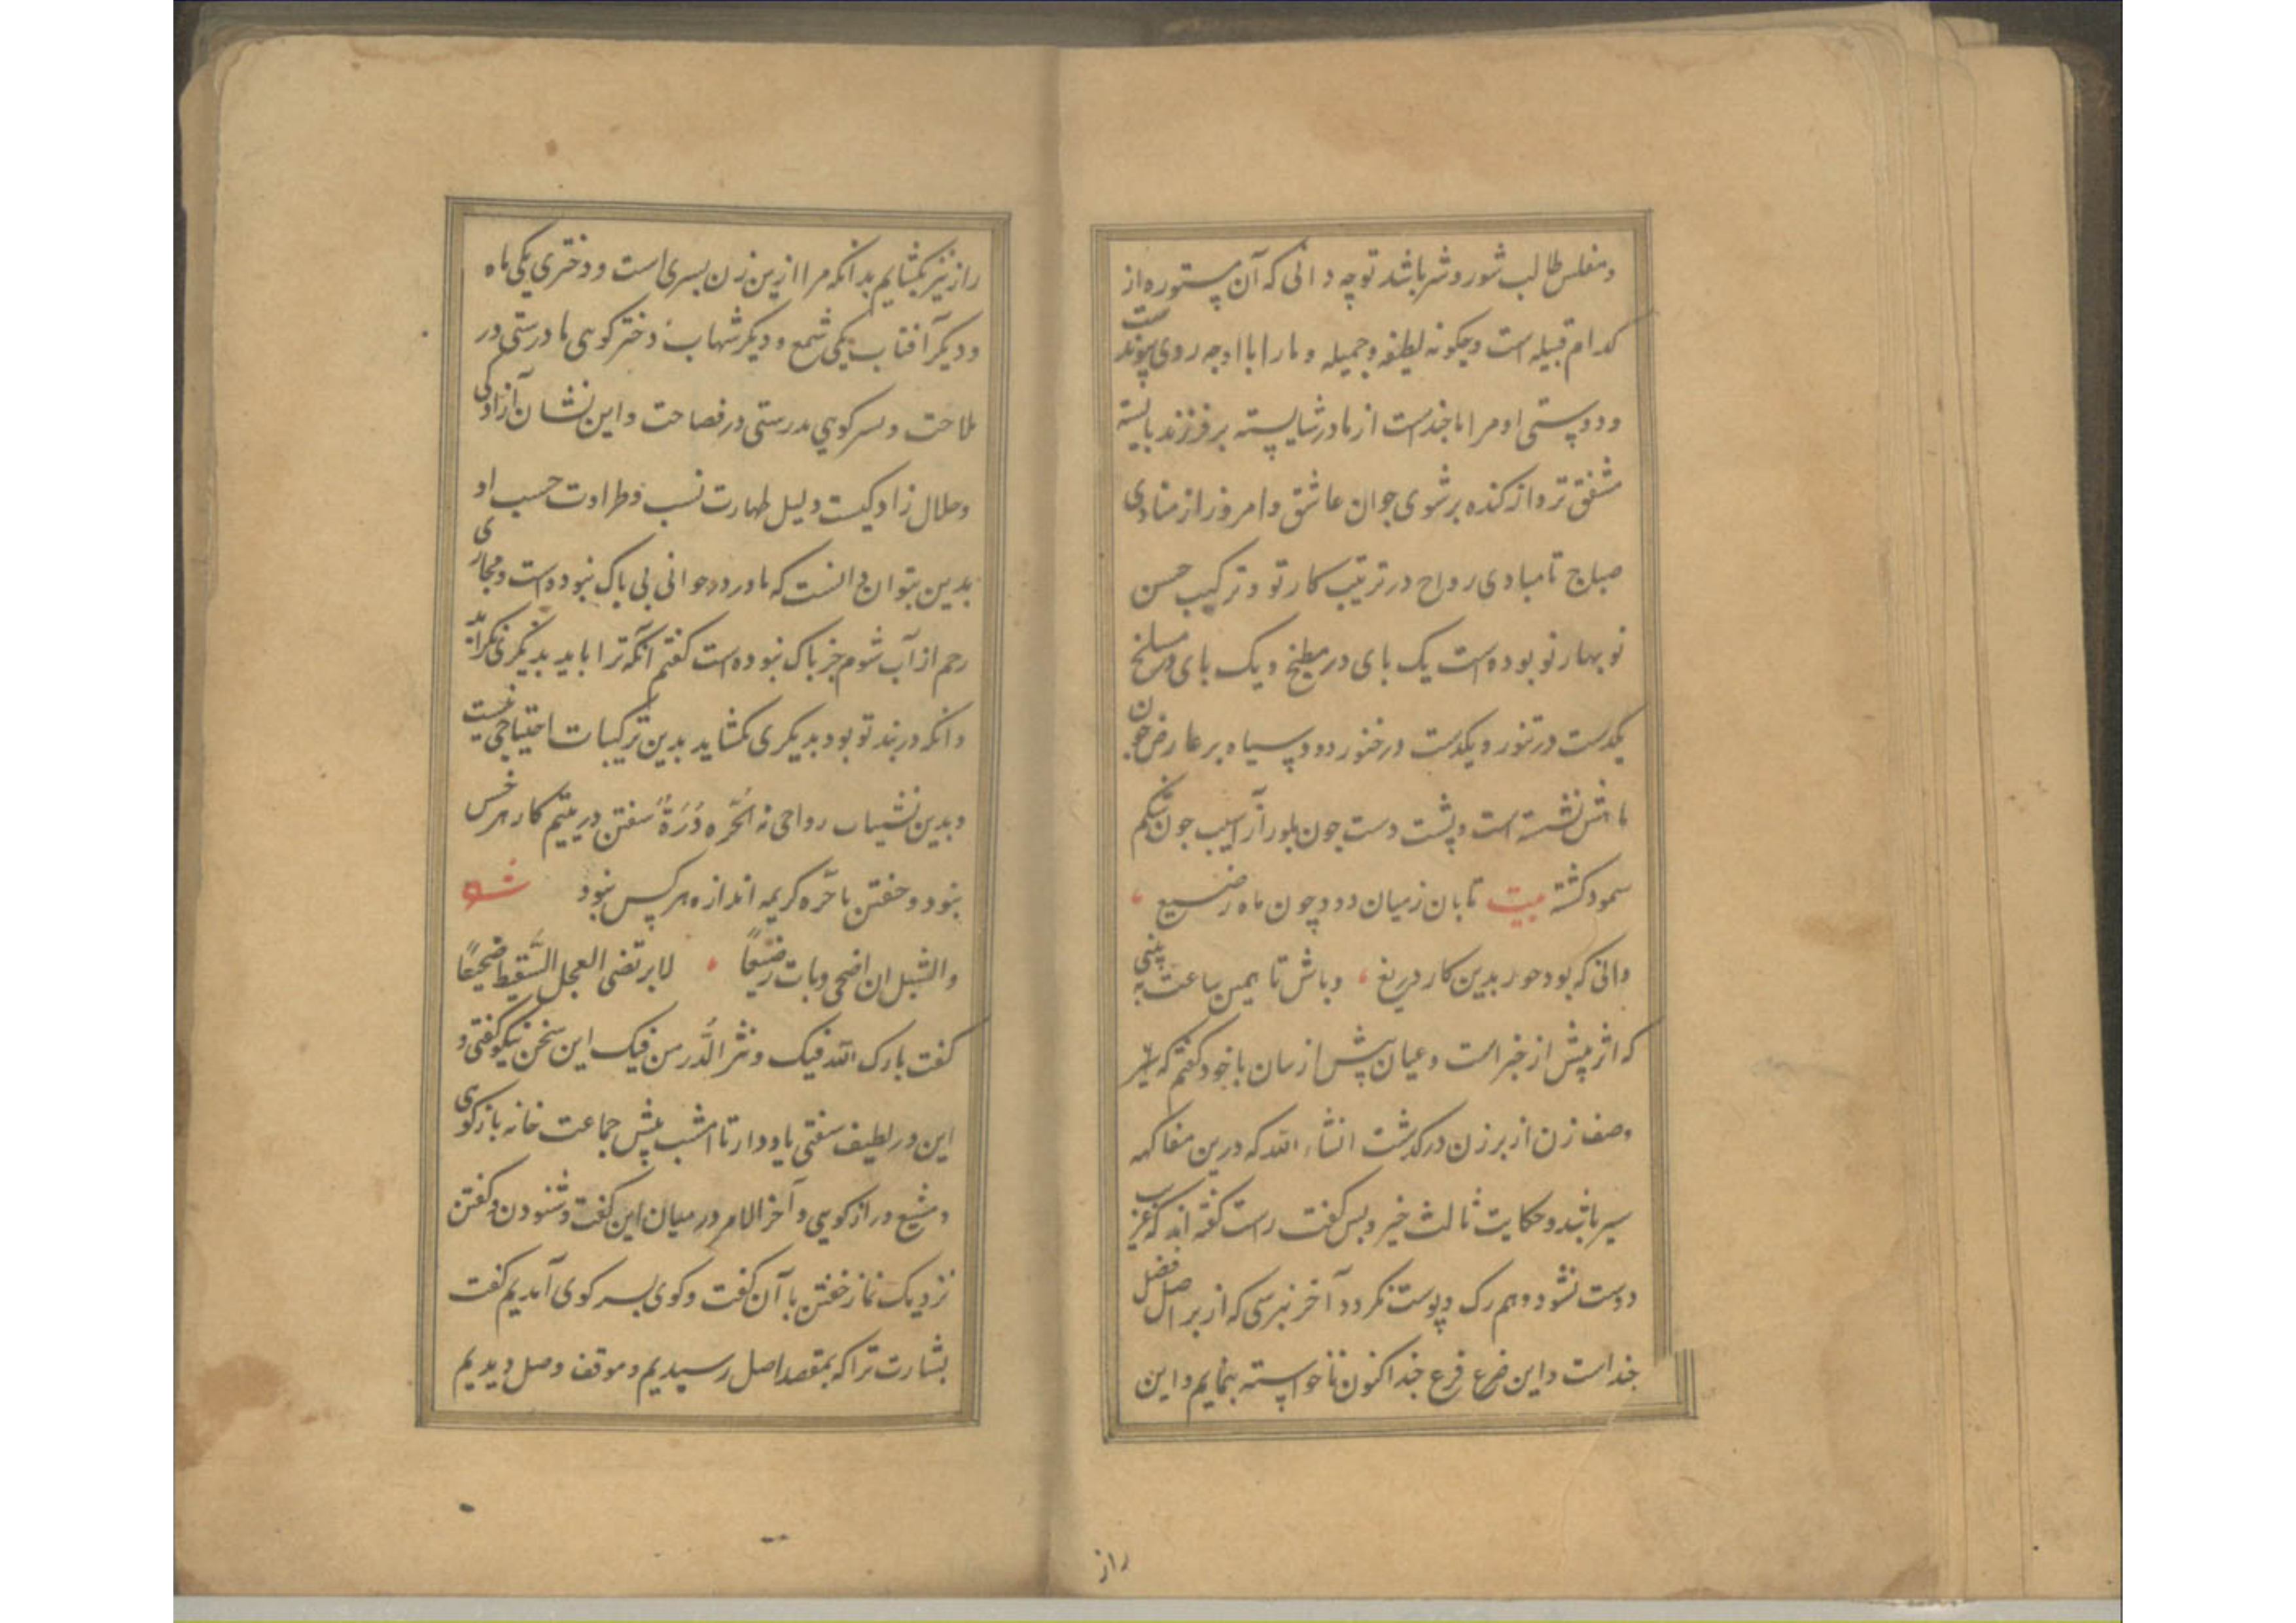 ومفلس طالب شور و شر باشد تو چه دانی که آن مستوره از
کدام قبیله است و چکونه لطیفه و جمیله و ما را با او چه روی پیوندست
و دوستی او مرا ما خدمست از مادر شایسته بر فرزند بایسته
مشفق تر و از کنده بر شوی جوان عاشق و امروز از منادی
صباح تا مبادی رواح در ترتیب کار تو و ترکیب حسن
نوبهار تو بوده است یک بای در مطبخ و یک بای در مسلخ
یکدست در تنور و یکدست در خنور دود سیاه بر عارض خون
ماهش نشسته است و پشت دست چون بلور از آسیب چون شکم
سمور کشته بیت تابان ز میان دود چون ماه ز میغ
دانی که بود حور بدین کار دریغ وباش تا همین ساعت به بینی
که اثر پیش از خبر است و عیان پیش از بیان با خود کفتم که
وصف زن از برزن درکذشت انشاء الله که درین مفاکهه
سیر باشد و حکایت ثالث خیر و بس کفت راست کفته اند که غریب
دوست نشود و هم رک و پوست نکردد آخر نبرسی که از بر اصل فضل
خداست و این ضرع فرع خد اکنون ناخواسته بنمایم و این
راز
راز نیز بکشایم بدانکه مرا ازین زن بسری است و دختری یکی ماه
و دیکر آفتاب یکی شمع و دیکر شهاب دختر کویی مادرستی در
ملاحت و بسر کویی بدرستی در فصاحت و این نشان آزادکی
و حلال زادکیست و دلیل طهارت نسب و طراوت حسب او
بدین بتوان دانست که مادر در جوانی بی باک نبوده است و مجاری
رحم از آب شوم جز باک نبوده است کفتم آنکه ترا باید بدیکری نکراید
و انکه در بند تو بود بدیکری نکشاید بدین ترکیبات احتیاجی نیست
و بدین رواجی نه الحرة درة سفتن در یتیم کار هر خس
نبود و خفتن با حره کریمه اندازه هر کس نبود شعر
والشبل ان اضحی وبات رضیعا لا یرتضی العجل السقیط ضجیعا
کفت بارک الله فیک و نثر الدر من فیک این سخن نیکو کفتی و
این در لطیف سفتی یاد دار تا امشب پیش جماعت خانه باز کوی
و مشبع دراز کویی و آخر الامر در میان این کفت و شنودن و کفتن
نزدیک نماز خفتن با آن کفت و کوی بسر کوی آمدیم کفت
بشارت ترا که بمقصد اصل رسیدیم و موقف وصل دیدیم